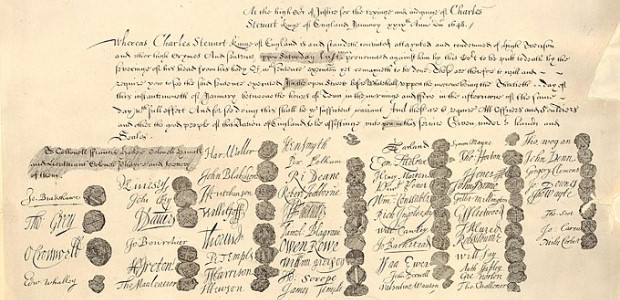 At the high Court of Justice for the tryinge and iudginge of Charles
Stewart Kinge of England January xxixth Anno Dni 1648.
Whereas Charles Stewart Kinge of England is and standeth convicted attaynted and condemned of High Treason
and other high Crymes And sentence uppon Saturday last pronounced against him by this Court to be putt to death by the
severinge of his head from his body Of wch sentence execucon yet remayneth to be done These are therefore to will and
require you to see the said sentence executed In the open Streete before Whitehall uppon the morrowe being the Thirtieth day of
this instante moneth of January betweene the houres of Tenn in the morninge and Five in the afternoone of the same
day wth full effect And for soe doing this shall be yor sufficient warrant And these are to require All Officers and Souldiers
and other the good people of this Nation of England to be assistinge unto you in this service Given under our hands and
Seales
To Collonell Francis Hacker Colonell Huncks
and Lieutenant Colonell Phayre and to every
of them
Jo Bradshawe
Tho Grey
O Cromwell
Edw Whalley
M Livesey
John Okey
J Danvers
Jo Bourchier
H Ireton
Tho Mauleverer
Har Waller
John Blakiston
J Hutchinson
Willi Goff
Tho Pride
P Temple
T Harrison
J Hewson
Hen Smyth
Per Pelham
Ri Deane
Robert Tichborne
H Edwardes
Daniel Blagrave
Owen Rowe
William Purefoy
Ad Scrope
James Temple
A Garland
Edm Ludlowe
Henry Marten
Vinct Potter
Wm Constable
Rich Ingoldesby
Will Cawley
Jo Barkstead
Isaa Ewer
John Dixwell
Valentine Wauton
Symon Mayne
Tho Horton
J Jones
John Penne
Gilbt Millington
G Fleetwood
J Alured
Robt Lilburne
Will Say
Anth Stapley
Gre Norton
Tho Challoner
Tho Wogan
John Venn
Gregory Clement
Jo Downes
Tho Wayte
Tho Scot
Jo Carew
Miles Corbet